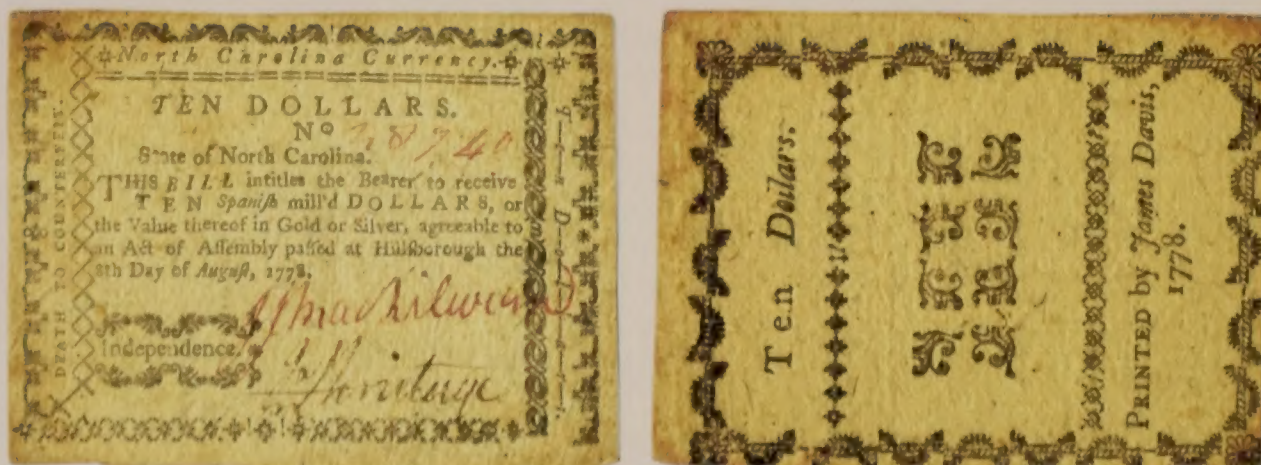 North Carolina Currency.
TEN DOLLARS.
No 28740
State of North Carolina.
THIS BILL intitles the Bearer to receive
TEN Spanish mill'd DOLLARS, or
the Value thereof in Gold or Silver, agreeable to
an Act of Assembly passed at Hillsborough the
8th Day of August, 1778.
Independence.
DEATH TO COUNTERFEIT.
Ten Dollars.
PRINTED by James Davis,
1778.